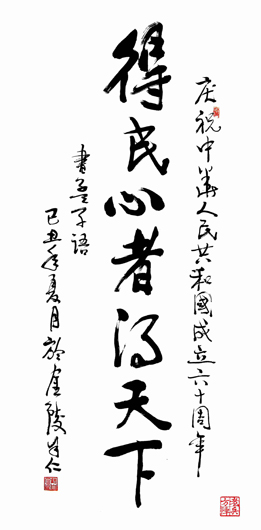 庆祝中华人民共和國成立六十周年
得民心者得天下
書孟子語
己丑年夏月於金陵